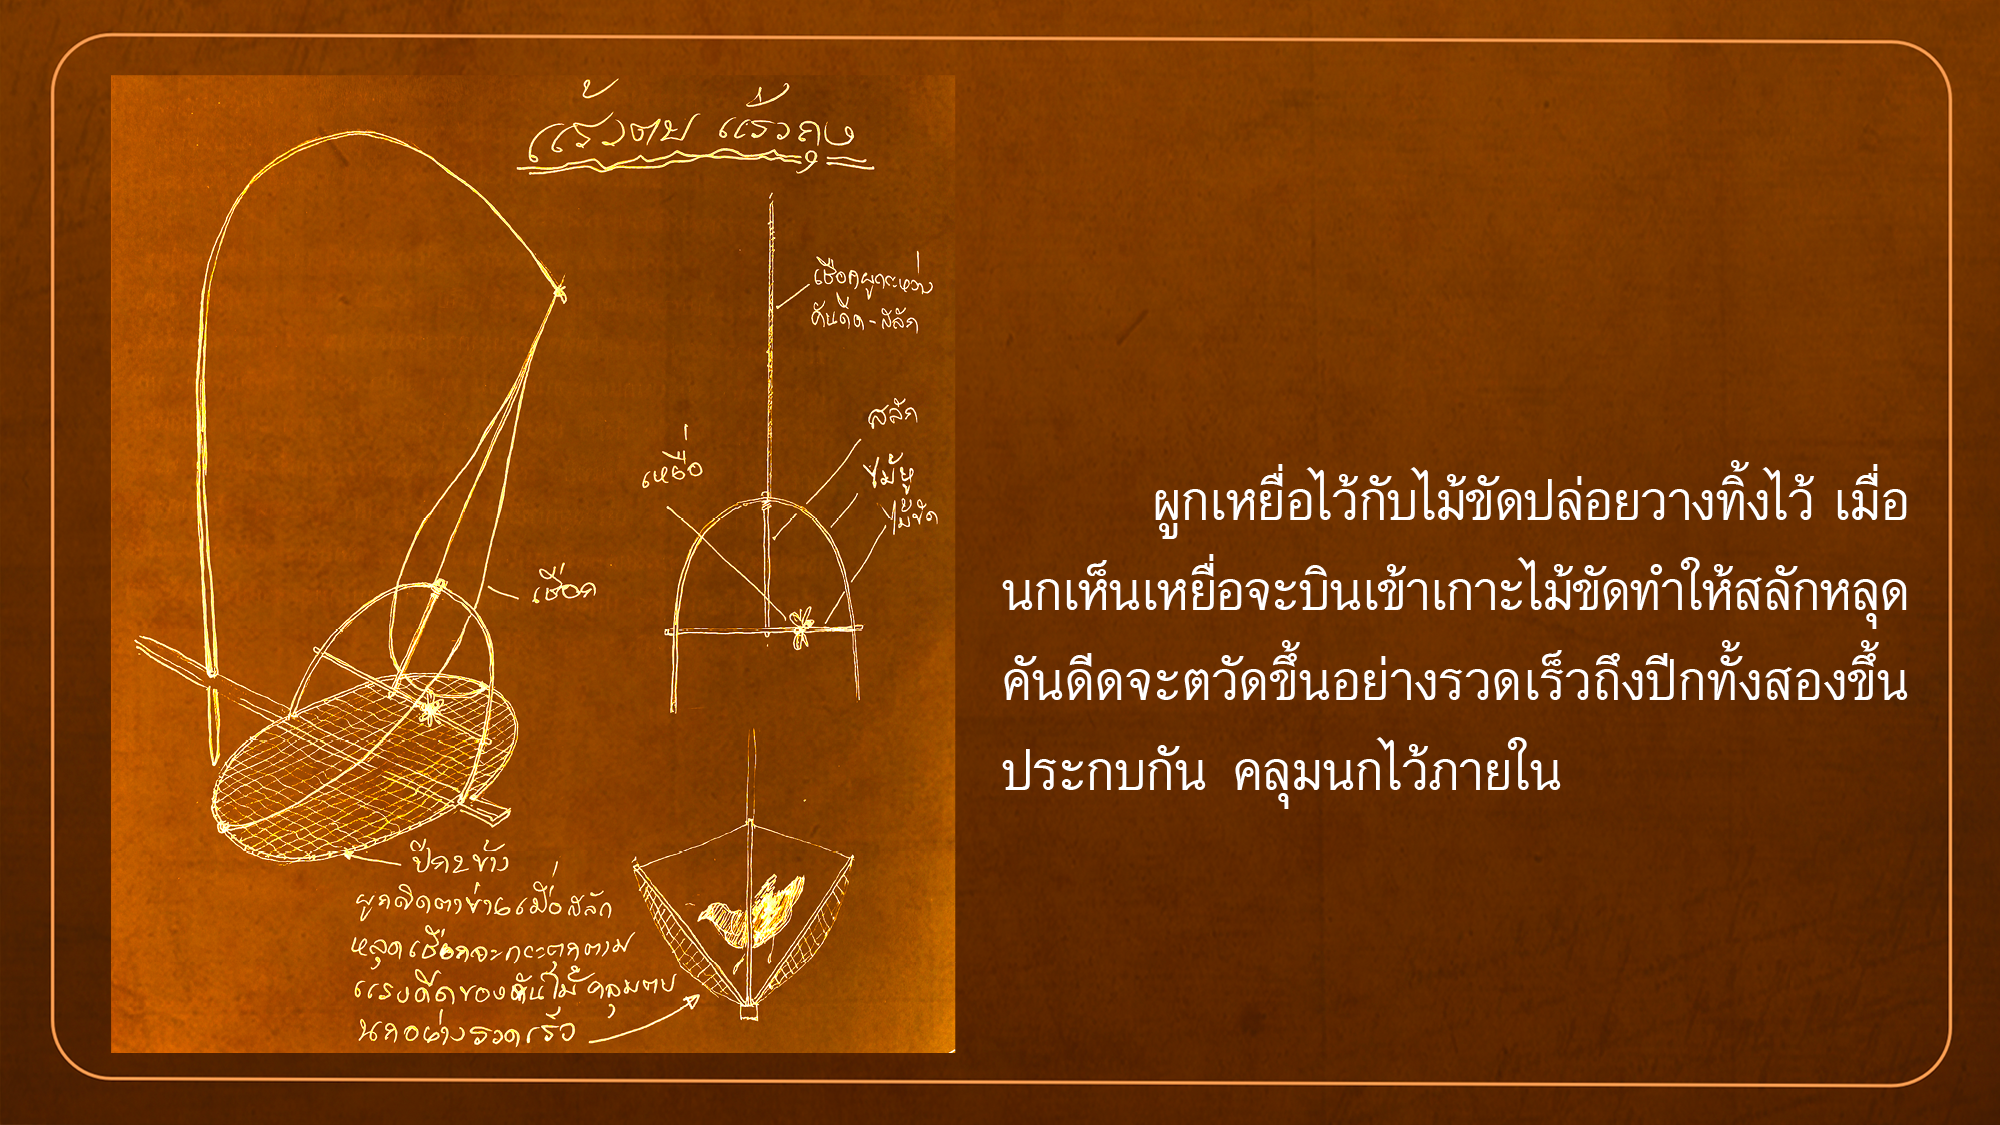 แร้วตบ แร้วถุง
เชือกผูกระหว่าง
คันดีด-สลัก
สลัก
เหยื่อ
ไม้หู
ไม้ขัด
เชือก
ปีก 2 ข้าง
ผูกติดตาข่ายเมื่อสลัก
หลุดเชือกจะกระตุกตาม
แรงดีดของคันไม้ คลุมตบ
นกอย่างรวดเร็ว
ผูกเหยื่อไว้กับไม้ขัดปล่อยวางทิ้งไว้ เมื่อ
นกเห็นเหยื่อจะบินเข้าเกาะไม้ขัดทำให้สลักหลุด
คันดีดจะตวัดขึ้นอย่างรวดเร็วถึงปีกทั้งสองขึ้น
ประกบกัน คลุมนกไว้ภายใน